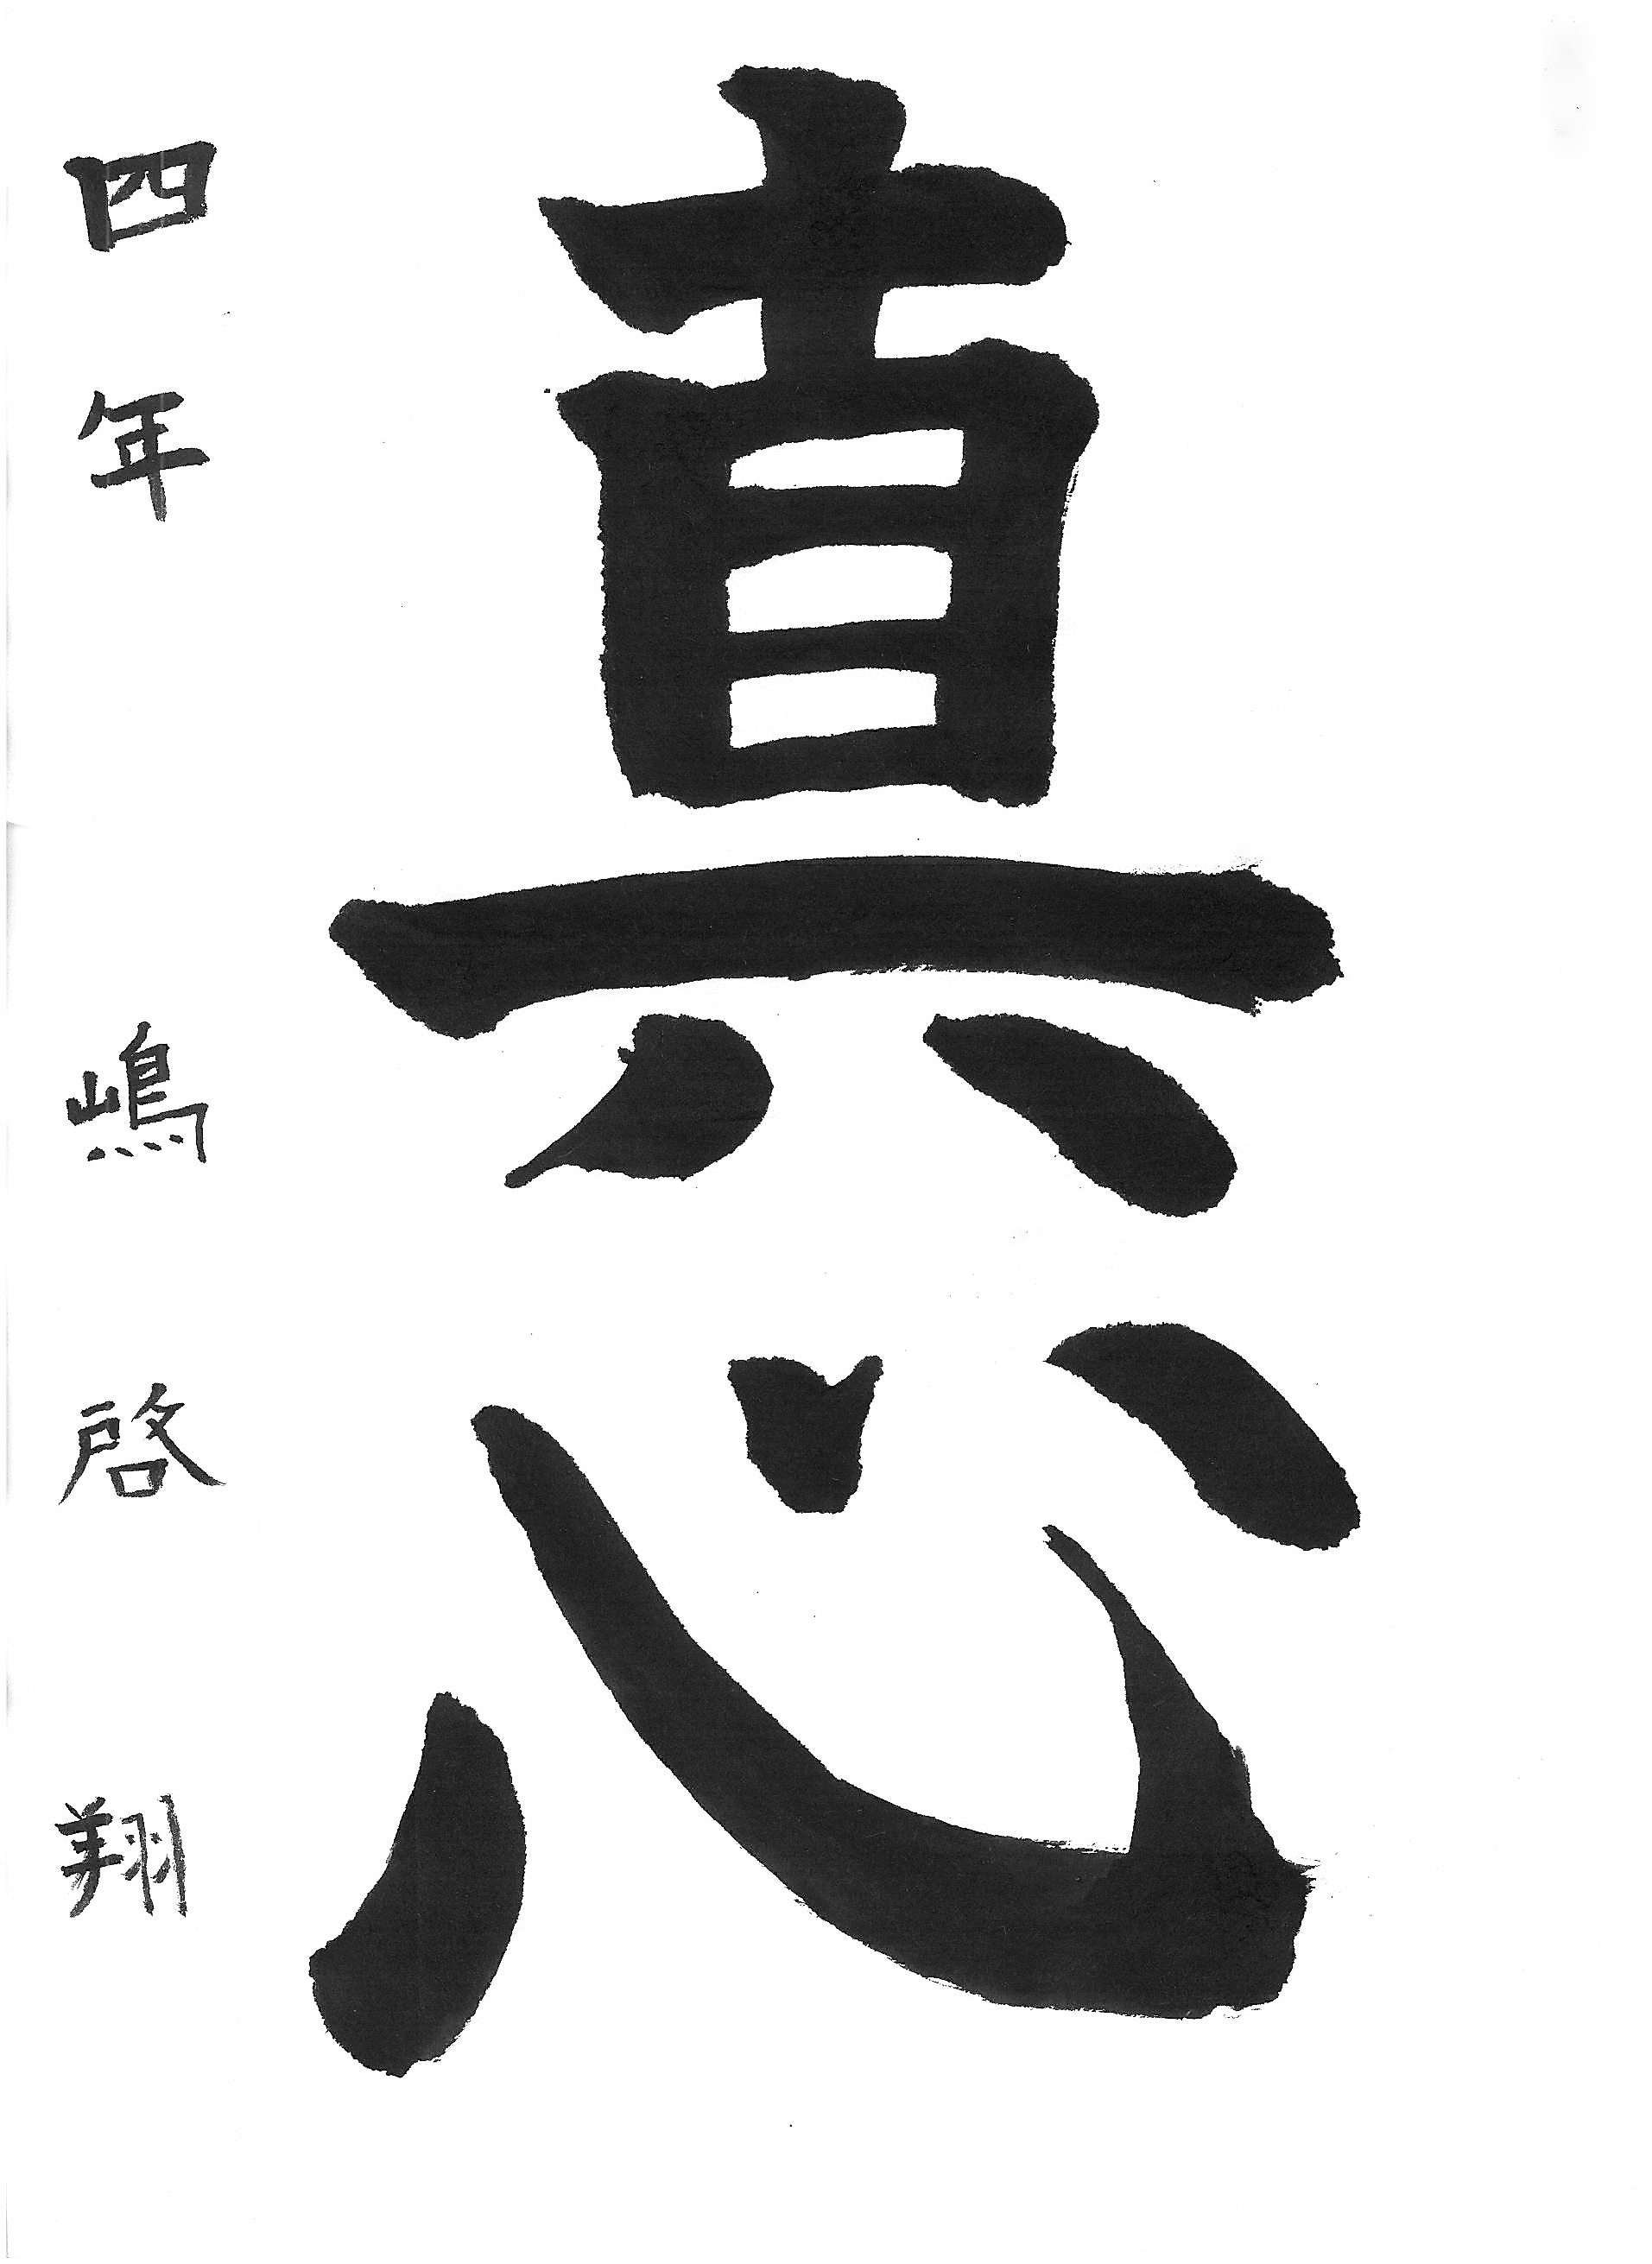 真心
四年 嶋 啓翔